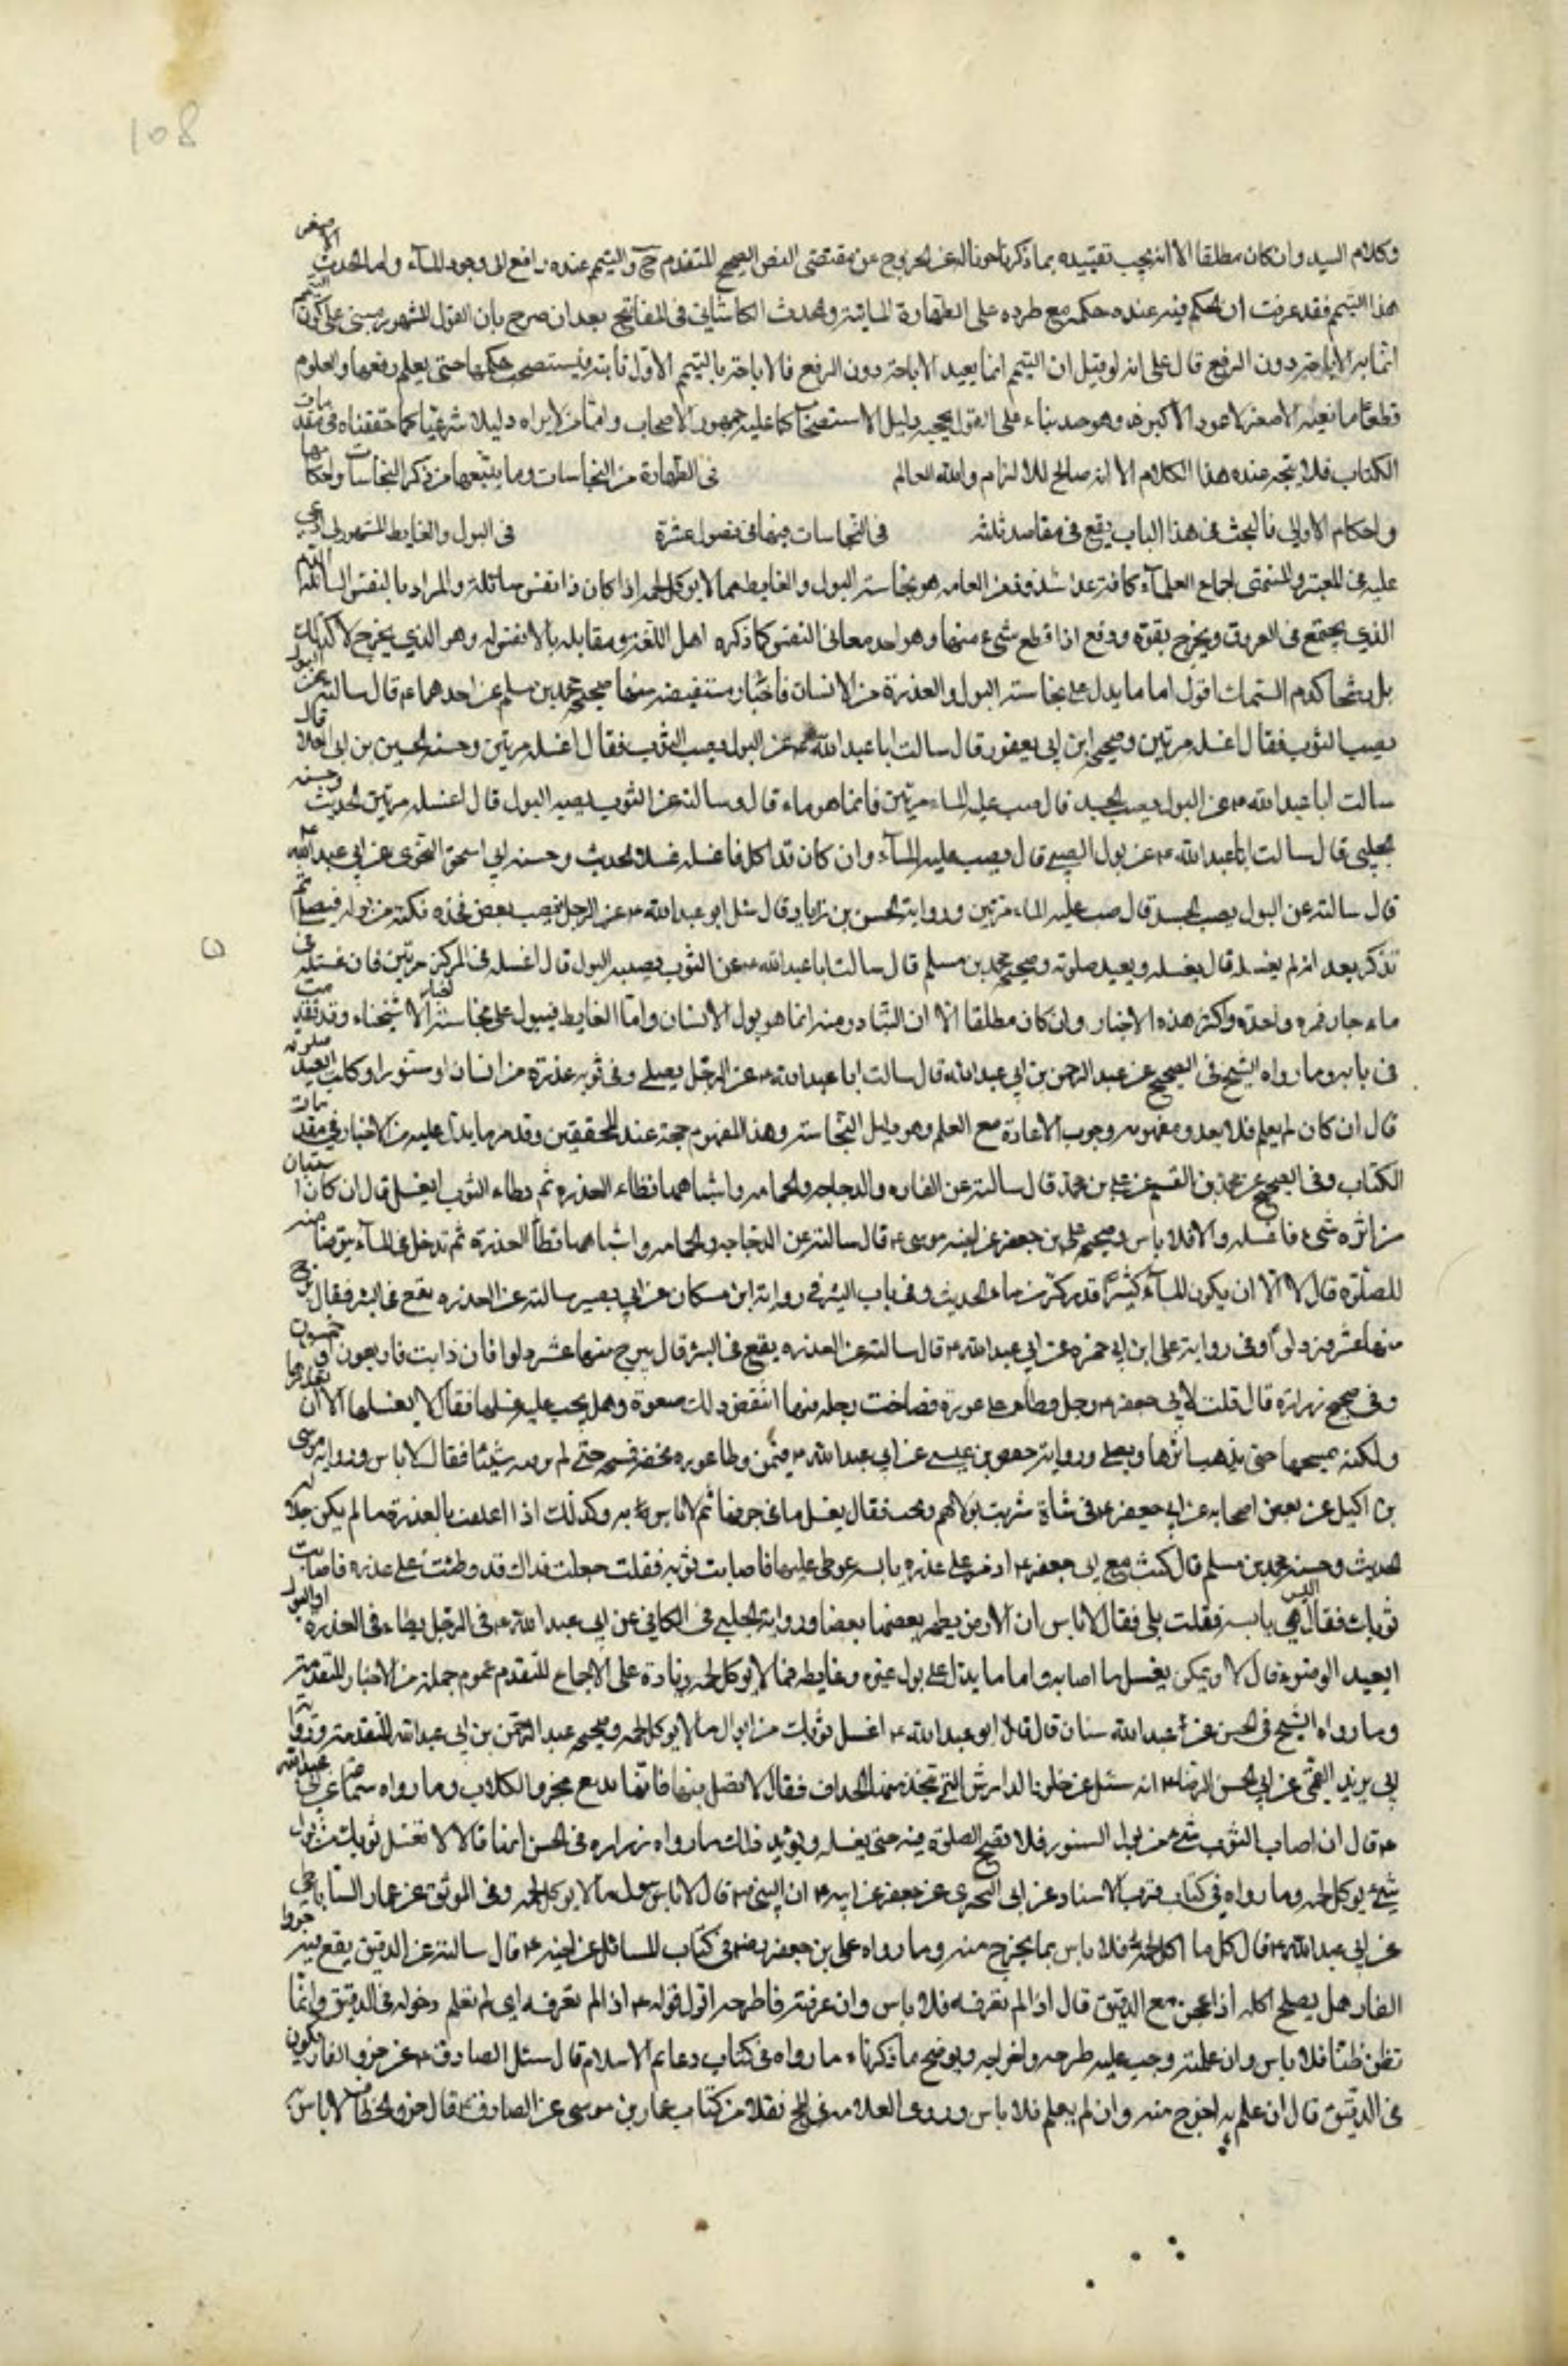 108
وكلام السيد وان كان مطلقا الا انه يجب تقييده بما ذكرنا صونا له عن الخروج عن مقتضى النص الصحيح المتقدم ح والتيمم عنده رافع الى وجود المآء واما الحدث الاصغر
هذا التيمم فقد عرفت ان الحكم فيه عنده حكمه مع طرده على الطهارة المائية والمحدث الكاشاني في المفاتيح بعد ان صرح بان القول المشهور مبنى على كون التيمم
انما به الاباحة دون الرفع قال على انه لو قيل ان التيمم انما يفيد الاباحة دون الرفع فالاباحة بالتيمم الاول ثابتة فيستصحب حكمها حتى يعلم رفعها والمعلوم
قطعا مانعية الاصغر لا عود الاكبر وهو جيد بناء على القول بحجية دليل الاستصحاب كما عليه جمهور الاصحاب واما من لا يراه دليلا شرعيا كما حققناه في مقدمات
الكتاب فلا يتجه عنده هذا الكلام الا انه صالح للالزام والله العالم في الطهارة من النجاسات وما يتبعها من ذكر النجاسات واحكامها
واحكام الاواني فالبحث في هذا الباب يقع في مقاصد ثلثة في النجاسات وفيها فصول عشرة في البول والغايط المشهور بل ادعى
عليه في المعتبر والمنتهى اجماع العلمآء كافة عدا شذوذ من العامه هو نجاسة البول والغايط مما لا يوكل لحمه اذا كان ذا نفس سائلة والمراد بالنفس السائلة الدم
الذي يجتمع في العروق ويخرج بقوة ودفع اذا قطع شيء منها وهو احد معاني النفس كما ذكره اهل اللغة ومقابله ما لا نفس له وهو الذي يخرج لا كذلك
بل رشحا كدم السمك اقول اما ما يدل على نجاسة البول والعذرة من الانسان فاخبار مستفيضه منها صحيحه محمد بن مسلم عن احدهما ع قال سالته عن البول
يصيب الثوب فقال اغسله مرتين وصحيحه ابن ابي يعفور قال سالت ابا عبد الله ع عن البول يصيب الثوب فقال اغسله مرتين وحسنه الحسين بن ابي العلا قال
سالت ابا عبد الله ع عن البول يصيب الجسد قال صب عليه الماء مرتين فانما هو ماء قال وسالته عن الثوب يصيبه البول قال اغسله مرتين الحديث وحسنه
الحلبي قال سالت ابا عبد الله ع عن بول الصبي قال يصب عليه المآء وان كان قد اكل فاغسله غسلا الحديث وحسنه ابي اسحق النحوى عن ابي عبد الله ع
قال سالته عن البول يصيب الجسد قال صب عليه الماء مرتين ورواية الحسن بن زياد قال سئل ابو عبد الله ع عن الرجل يصيب بعض فخذه نكتة من بوله فيصلى ثم
تذكر بعد انه لم يغسله قال يغسله ويعيد صلوته وصحيحه محمد بن مسلم قال سالت ابا عبد الله ع عن الثوب يصيبه البول قال اغسله في المركن مرتين فان غسلته في
ماء جار فمره واحدة واكثر هذه الاخبار وان كان مطلقا الا ان المتبادر منه انما هو بول الانسان واما الغايط فيدل على نجاسته اخبار الاستنجاء وقد تقدمت
في بابه وما رواه الشيخ في الصحيح عن عبد الرحمن بن ابي عبد الله قال سالت ابا عبد الله ع عن الرجل يصلى وفي ثوبه عذرة من انسان او سنور او كلب ايعيد صلوته
قال ان كان لم يعلم فلا يعد ومفهومه وجوب الاعادة مع العلم وهو دليل النجاسة وهذا المفهوم حجة عند المحققين وقد مر ما يدل عليه من الاخبار في مقدمات
الكتاب وفي الصحيح عن موسى بن القسم عن علي بن محمد قال سالته عن الفاره والدجاجه والحمامه واشباهها تطاء العذره ثم تطاء الثوب ايغسل قال ان كان استبان
من اثره شيء فاغسله والا فلا باس وصحيحه علي بن جعفر عن اخيه موسى ع قال سالته عن الدجاجه والحمامه واشباههما تطأ العذرة ثم تدخل في المآء يتوضا منه
للصلوة قال لا الا ان يكون المآء كثيرا قدر كر من ماء الحديث وفي باب البئر في رواية ابن مسكان عن ابي بصير سالته عن العذره تقع في البئر فقال ينزح
منها عشرة دلوا وفي رواية علي ابن ابي حمزه عن ابي عبد الله ع قال سالته عن العذره يقع في البئر قال ينزح منها عشر دلوا فان ذابت فاربعون او خمسون
وفي صحيح زرارة قال قلت لابي جعفر ع رجل وطاء على عذرة فساخت رجله فيها اينقض ذلك وضوءه وهل يجب عليه غسلها فقال لا يغسلها الا ان يقذرها
ولكنه يمسحها حتى يذهب اثرها ويصلي ورواية حفص بن عيسى عن ابي عبد الله ع فيمن وطا عذره بخفه فمسحه حتى لم ير فيه شيئا فقال لا باس ورواية موسى
بن اكيل عن بعض اصحابه عن ابي جعفر ع في شاة شربت بولا ثم ذبحت فقال يغسل ما في جوفها ثم لا باس به وكذلك اذا اعتلفت بالعذرة ما لم يكن جلاله
الحديث وحسنه محمد بن مسلم قال كنت مع ابي جعفر ع اذ مر على عذرة يابسه فوطى عليها فاصابت ثوبه فقلت جعلت فداك قد وطئت على عذره فاصابت
ثوبك فقال اليس هي يابسة فقلت بلى فقال لا باس ان الارض يطهر بعضها بعضا ورواية الحلبي في الكافي عن ابي عبد الله ع في الرجل يطاء في العذره او البول
ايعيد الوضوء قال لا ولكن يغسل ما اصابه واما ما يدل على بول غيره وغايطه مما لا يوكل لحمه زيادة على الاجماع المتقدم عموم جملة من الاخبار المتقدمة
وما رواه الشيخ في الحسن عن عبد الله سنان قال قال ابو عبد الله ع اغسل ثوبك من ابوال ما لا يوكل لحمه وصحيحه عبد الرحمن بن ابي عبد الله المتقدمة ورواية
ابي يزيد القمى عن ابي الحسن الرضا ع انه سئل عن جلود الدارش التي تتخذ منها الخفاف فقال لا تصل فيها فانها تدبغ بخرو الكلاب وما رواه سماعة عن ابي عبد الله
ع قال ان اصاب الثوب شيء من بول السنور فلا تصح الصلوة فيه حتى يغسله ويؤيد ذلك ما رواه زراره في الحسن انهما قالا لا تغسل ثوبك من بول
شيء يوكل لحمه وما رواه في كتاب قرب الاسناد عن ابي البحترى عن جعفر عن ابيه ع ان النبي ص قال لا باس ببول ما لا يوكل لحمه وفي الموثق عن عمار الساباطي
عن ابي عبد الله ع قال كل ما اكل لحمه فلا باس بما يخرج منه وما رواه علي بن جعفر رض في كتاب المسائل عن اخيه ع قال سالته عن الدقيق يقع فيه خرو
الفار هل يصلح اكله اذا عجن مع الدقيق قال اذا لم تعرفه فلا باس وان عرفته فاطرحه اقول قوله ع اذا لم تعرفه اي لم تعلم دخوله في الدقيق وانما
تظن ظنا فلا باس وان علمته وجب عليه طرحه واخراجه ويوضح ما ذكرناه ما رواه في كتاب دعايم الاسلام قال سئل الصادق ع عن خرو الفار يكون
في الدقيق قال ان علم به اخرج منه وان لم يعلم فلا باس وروى العلامه في المخ نقلا من كتاب عمار بن موسى عن الصادق ع قال خرو الخطاف لا باس به